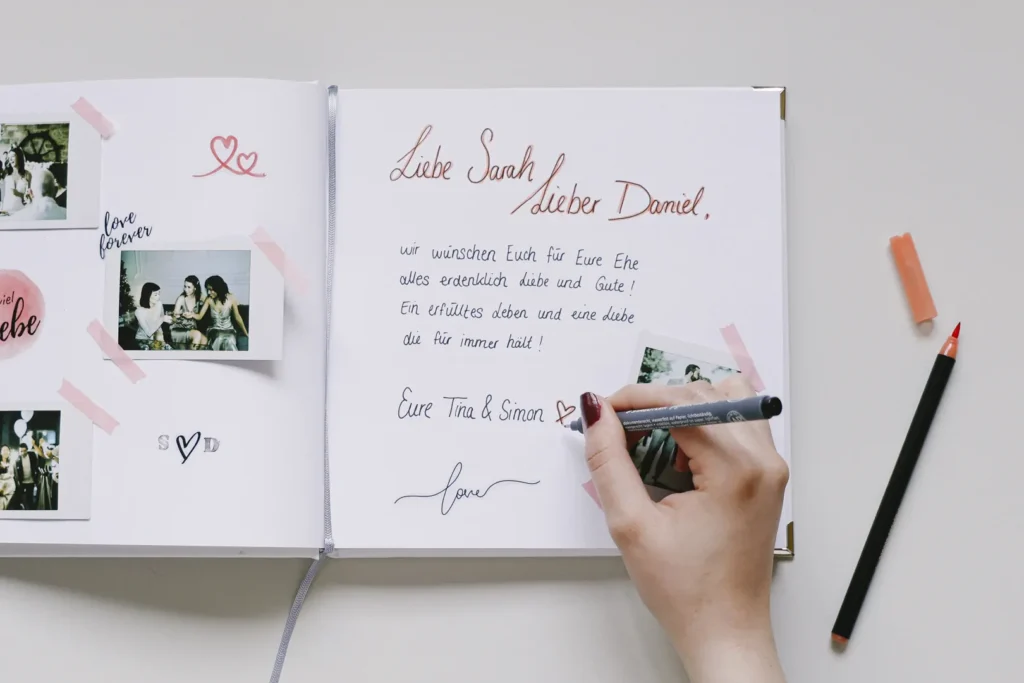 love
forever
viel
S D
Liebe Sarah
Lieber Daniel,
wir wünschen Euch für Eure Ehe
alles erdenklich Liebe und Gute!
Ein erfülltes Leben und eine Liebe
die für immer hält!
Eure Tina & Simon
love